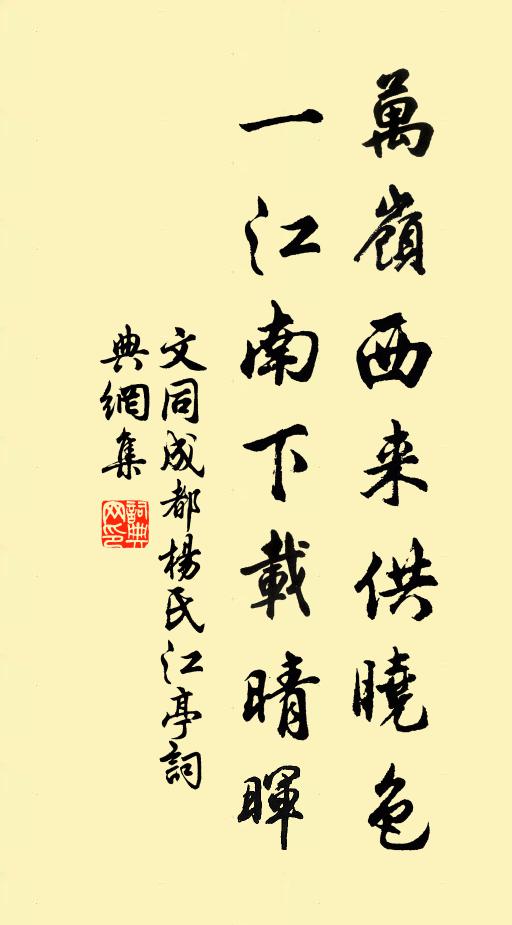 萬嶺西来供曉色
一江南下載晴暉
文同成都楊氏江亭詞
典網集
詞典
网印